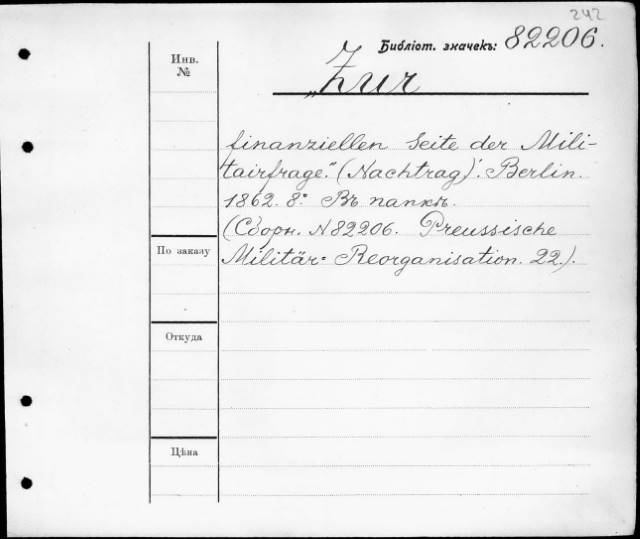 242
Библіот. значекъ: 82206.
Инв.
№
„Zur
finanziellen Seite der Mili-
tairfrage." (Nachtrag). Berlin.
1862. 8º. Въ папкѣ.
(Сборн. N 82206. Preussische
По заказу
Militär-Reorganisation. 22.).
Откуда
Цѣна